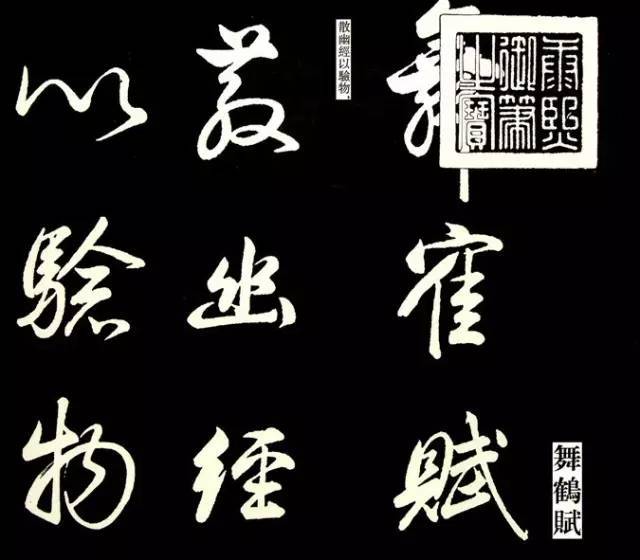 康熙
御筆
之寶
舞隺賦
舞鶴賦
散幽經
散幽經以驗物，
以驗物